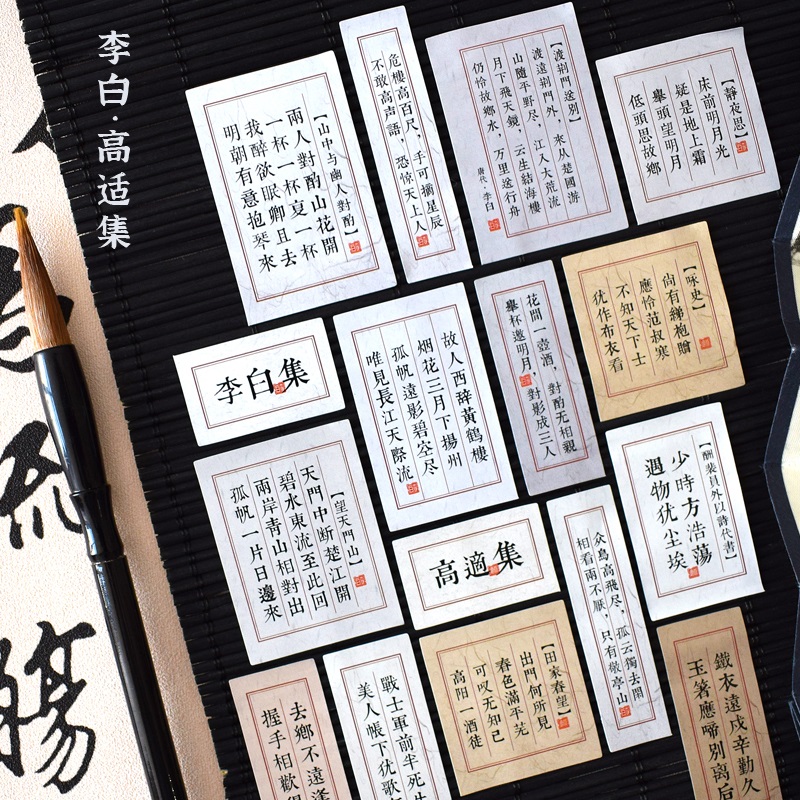 李白·高适集
【山中与幽人對酌】
兩人對酌山花開
一杯一杯复一杯
我醉欲眠卿且去
明朝有意抱琴來
危樓高百尺，手可摘星辰
不敢高声語，恐惊天上人
【渡荆門送别】
渡遠荆門外，來从楚國游
山隨平野尽，江入大荒流
月下飛天鏡，云生結海樓
仍怜故鄉水，万里送行舟
唐代·李白
【靜夜思】
床前明月光
疑是地上霜
舉頭望明月
低頭思故鄉
李白集
故人西辞黄鶴樓
烟花三月下揚州
孤帆遠影碧空尽
唯見長江天際流
花間一壺酒，對酌无相親
舉杯邀明月，對影成三人
【咏史】
尚有綈袍贈
應怜范叔寒
不知天下士
犹作布衣看
【望天門山】
天門中断楚江開
碧水東流至此回
兩岸青山相對出
孤帆一片日邊來
高適集
众鳥高飛尽，孤云獨去閑
相看兩不厭，只有敬亭山
【酬裴員外以詩代書】
少時方浩蕩
遇物犹尘埃
去鄉不遠逢
握手相歡得
戰士軍前半死生
美人帳下犹歌
【田家春望】
出門何所見
春色滿平芜
可叹无知己
高阳一酒徒
鐵衣遠戍辛勤久
玉箸應啼别离后
流
觴